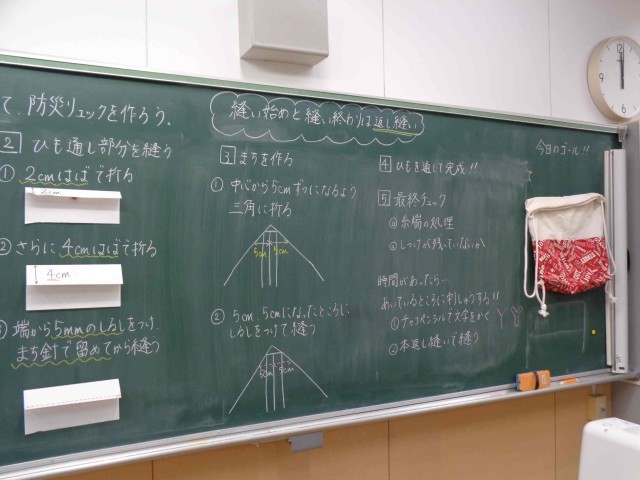 て、防災リュックを作ろう。
縫い始めと縫い終わりは返し縫い
今日のゴール!!
2 ひも通し部分を縫う
① 2cmはばで折る
2cm
② さらに4cmはばで折る
4cm
端から5mmのしるしをつけ、
まち針で留めてから縫う
3 まちを作る
① 中心から5cmずつになるよう
三角に折る
5cm 5cm
② 5cm、5cmになったところに
しるしをつけて縫う
5cm 5cm
4 ひもを通して完成!!
5 最終チェック
◎糸端の処理
◎しつけが残っていないか
時間があったら…
あいているところにししゅうする!!
①チャコペンシルで文字をかく
Y Y
②本返し縫いで縫う